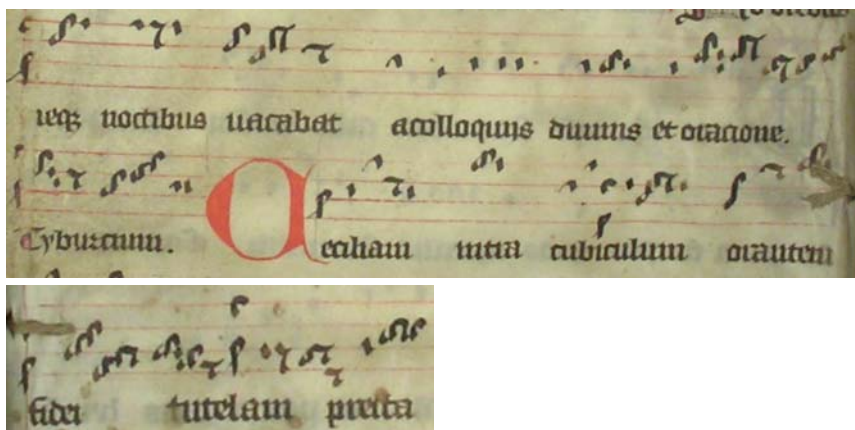 ieqz noctibus uacabat a colloquijs diuinis et oracione.
Tyburcium. Ceciliam intra cubiculum orantem
fidei tutelam precita